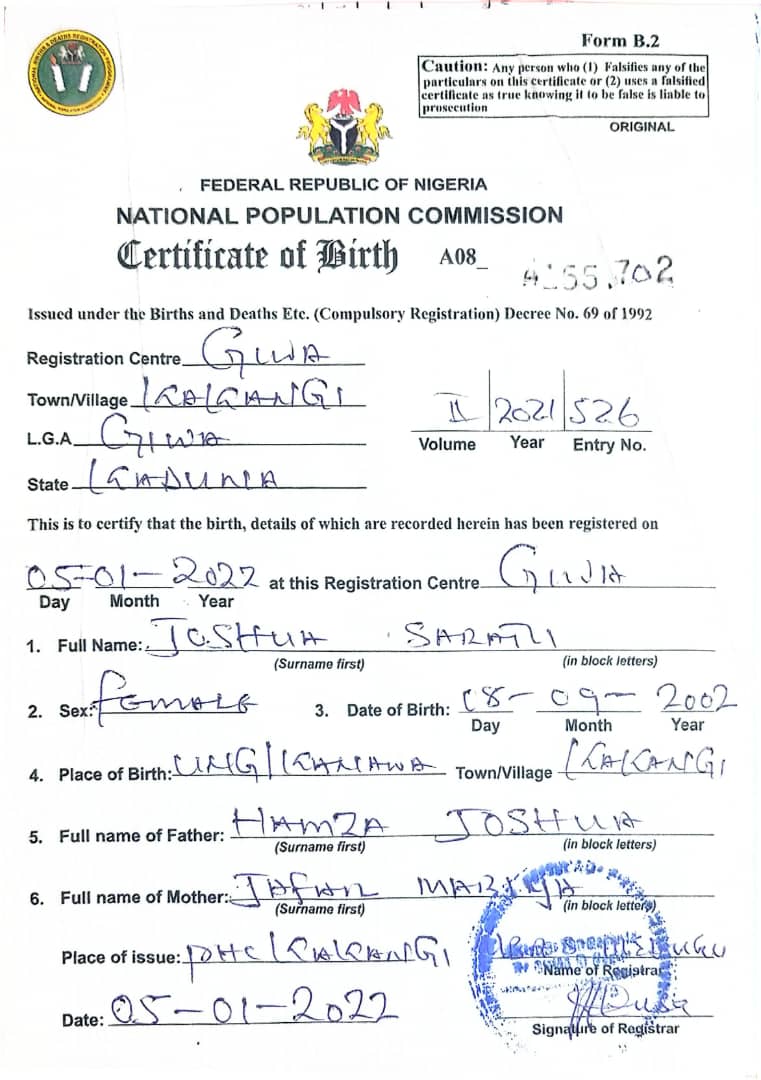 Form B.2
Caution: Any person who (1) Falsifies any of the
particulars on this certificate or (2) uses a falsified
certificate as true knowing it to be false is liable to
prosecution
ORIGINAL
FEDERAL REPUBLIC OF NIGERIA
NATIONAL POPULATION COMMISSION
Certificate of Birth A08_ 55,702
Issued under the Births and Deaths Etc. (Compulsory Registration) Decree No. 69 of 1992
Registration Centre GIWA
Town/Village KAKANGI
L.G.A GIWA
II 2021 526
Volume Year Entry No.
State KADUNA
This is to certify that the birth, details of which are recorded herein has been registered on
05-01-2022 at this Registration Centre GIWA
Day Month Year
1. Full Name: JOSHUA
(Surname first) (in block letters)
2. Sex: FEMALE 3. Date of Birth: 18-09-2002
Day Month Year
4. Place of Birth: UNG/KANAWA Town/Village KAKANGI
5. Full name of Father: HAMZA JOSHUA
(Surname first) (in block letters)
6. Full name of Mother:
(Surname first) (in block letters)
Place of issue: PHC KAKANGI
Name of Registrar
Date: 05-01-2022
Signature of Registrar